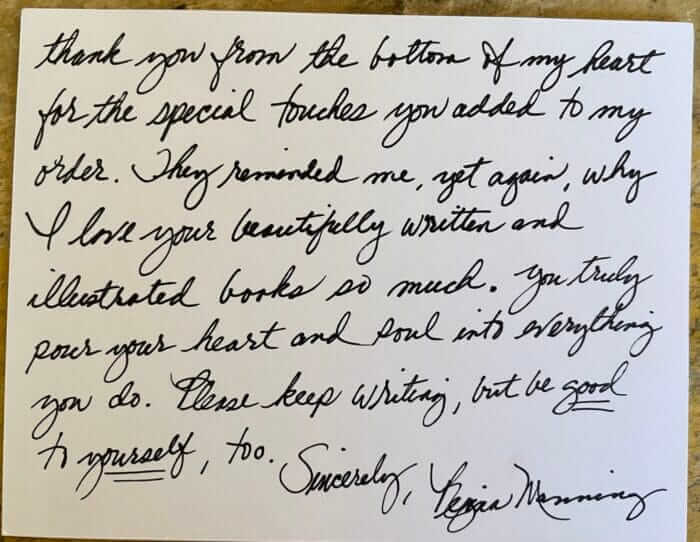 thank you from the bottom of my heart
for the special touches you added to my
order. They reminded me, yet again, why
I love your beautifully written and
illustrated books so much. You truly
pour your heart and soul into everything
you do. Please keep writing, but be good
to yourself, too. Sincerely, Manning